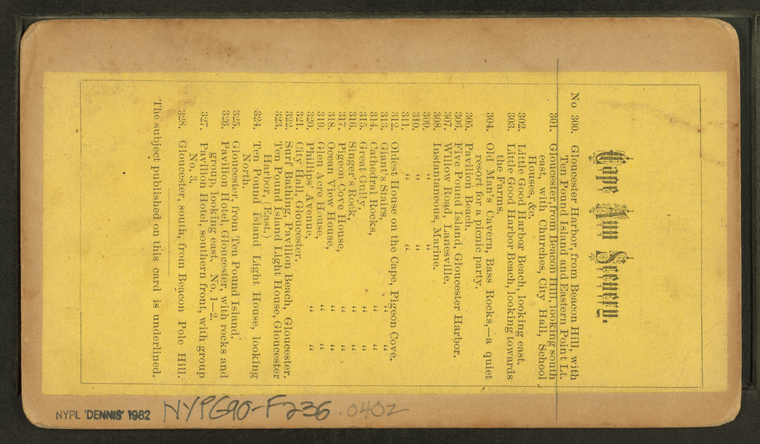 Cape Ann Scenery.
No 300. Gloucester Harbor, from Beacon Hill, with
Ten Pound Island and Eastern Point Lt.
301. Gloucester, from Beacon Hill, looking south
east, with Churches, City Hall, School
Houses, &c.
302. Little Good Harbor Beach, looking east.
303. Little Good Harbor Beach, looking towards
the Farms.
304. Old Man's Cavern, Bass Rocks,—a quiet
resort for a picnic party.
305. Pavilion Beach.
306. Five Pound Island, Gloucester Harbor.
307. Willow Road, Lanesville.
308. Instantaneous, Marine.
309. " "
310. " "
311. " "
312. Oldest House on the Cape, Pigeon Cove.
313. Giant's Stairs, " "
314. Cathedral Rocks, " "
315. Great Gully, " "
316. Singer's Rock, " "
317. Pigeon Cove House, " "
318. Ocean View House, " "
319. Glen Acre House, " "
320. Phillips' Avenue, " "
321. City Hall, Gloucester.
322. Surf Bathing, Pavilion Beach, Gloucester.
323. Ten Pound Island Light House, Gloucester
Harbor, (East.)
324. Ten Pound Island Light House, looking
North.
325. Gloucester, from Ten Pound Island.
326. Pavilion Hotel, Gloucester, with rocks and
group, looking east. No. 1—2.
327. Pavilion Hotel, southern front, with group
No. 3.
328. Gloucester, south, from Beacon Pole Hill.
The subject published on this card is underlined.
NYPL 'DENNIS' 1982 NYPG90-F236 .0402